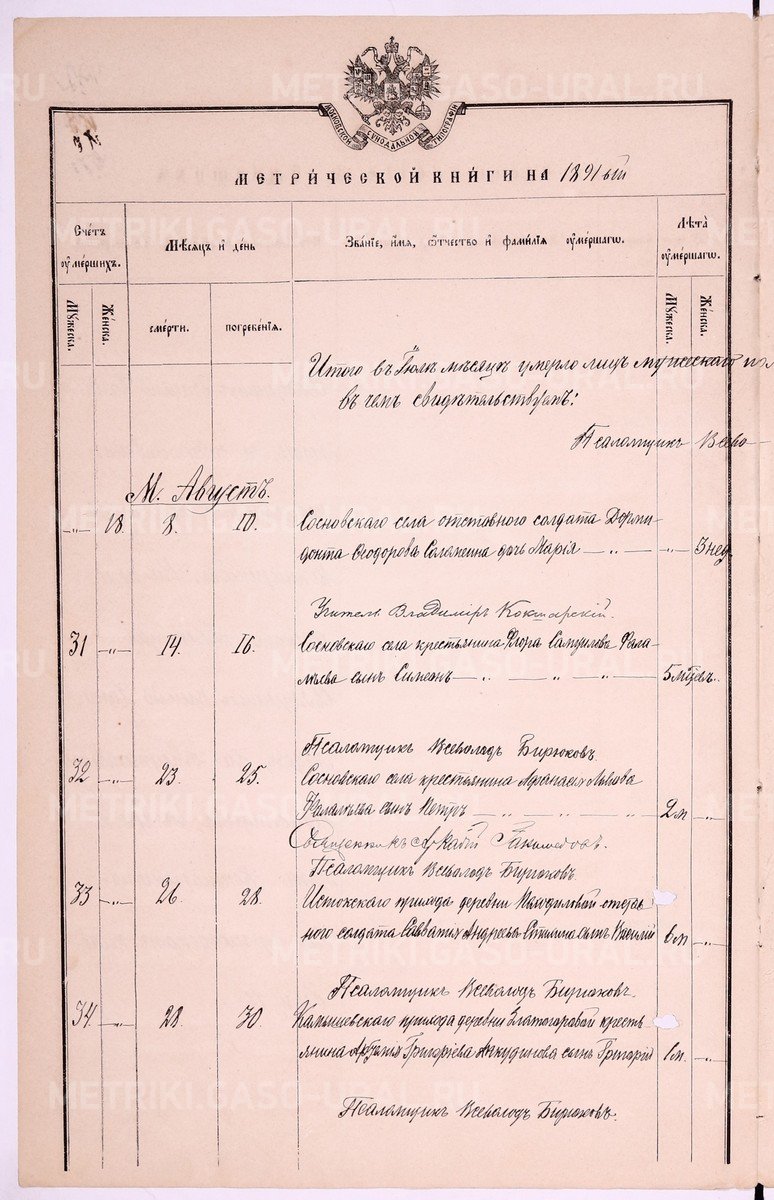 METRIKI.GASO-URAL.RU
МОСКОВСКОЙ СѴНОДАЛЬНОЙ ТИПОГРАФІИ
МЕТРИ́ЧЕСКОЙ КНИ́ГИ НА 1891 ый
Сче́тъ оумершихъ.
Мѣсяцъ и де́нь
Зва́нїе, и҆́мя, ѻ҆́тчество и҆ фами́лїѧ оу҆ме́ршагѡ.
Лѣ́та оу҆ме́ршагѡ.
Му́жеска.
Же́нска.
сме́рти.
погребе́нїѧ.
Му́жеска.
Же́нска.
Итого въ Іюлѣ мѣсяцѣ умерло лицъ мужескаго пол
въ чемъ свидѣтельствуемъ:
Псаломщикъ Всево
М. Августъ.
„ 18. 8. 10. Сосновскаго села отставного солдата Дорми-
донта Ѳеодорова дочь Марія — „ — „ 3 нед
Учитель Владиміръ Кокшарскій.
31 „ 14. 16. Сосновскаго села крестьянина Флора Самуилова Фала-
лѣева сынъ Симеонъ — „ „ „ 5 мѣс. „
Псаломщикъ Всеволодъ Бирюковъ.
32 „ 23. 25. Сосновскаго села крестьянина
Фалалѣева сынъ Петръ 2 м „
Священникъ Аркадій
Псаломщикъ Всеволодъ Бирюковъ
33 „ 26. 28. Истокскаго прихода деревни отстав-
ного солдата Савватія Андреева сынъ Василій 6 м „
Псаломщикъ Всеволодъ Бирюковъ.
34. „ 28 30. Камышевскаго прихода деревни Златогоровой кресть-
янина Григоріева Анкудинова сынъ Григорій 1 м. „
Псаломщикъ Всеволодъ Бирюковъ.